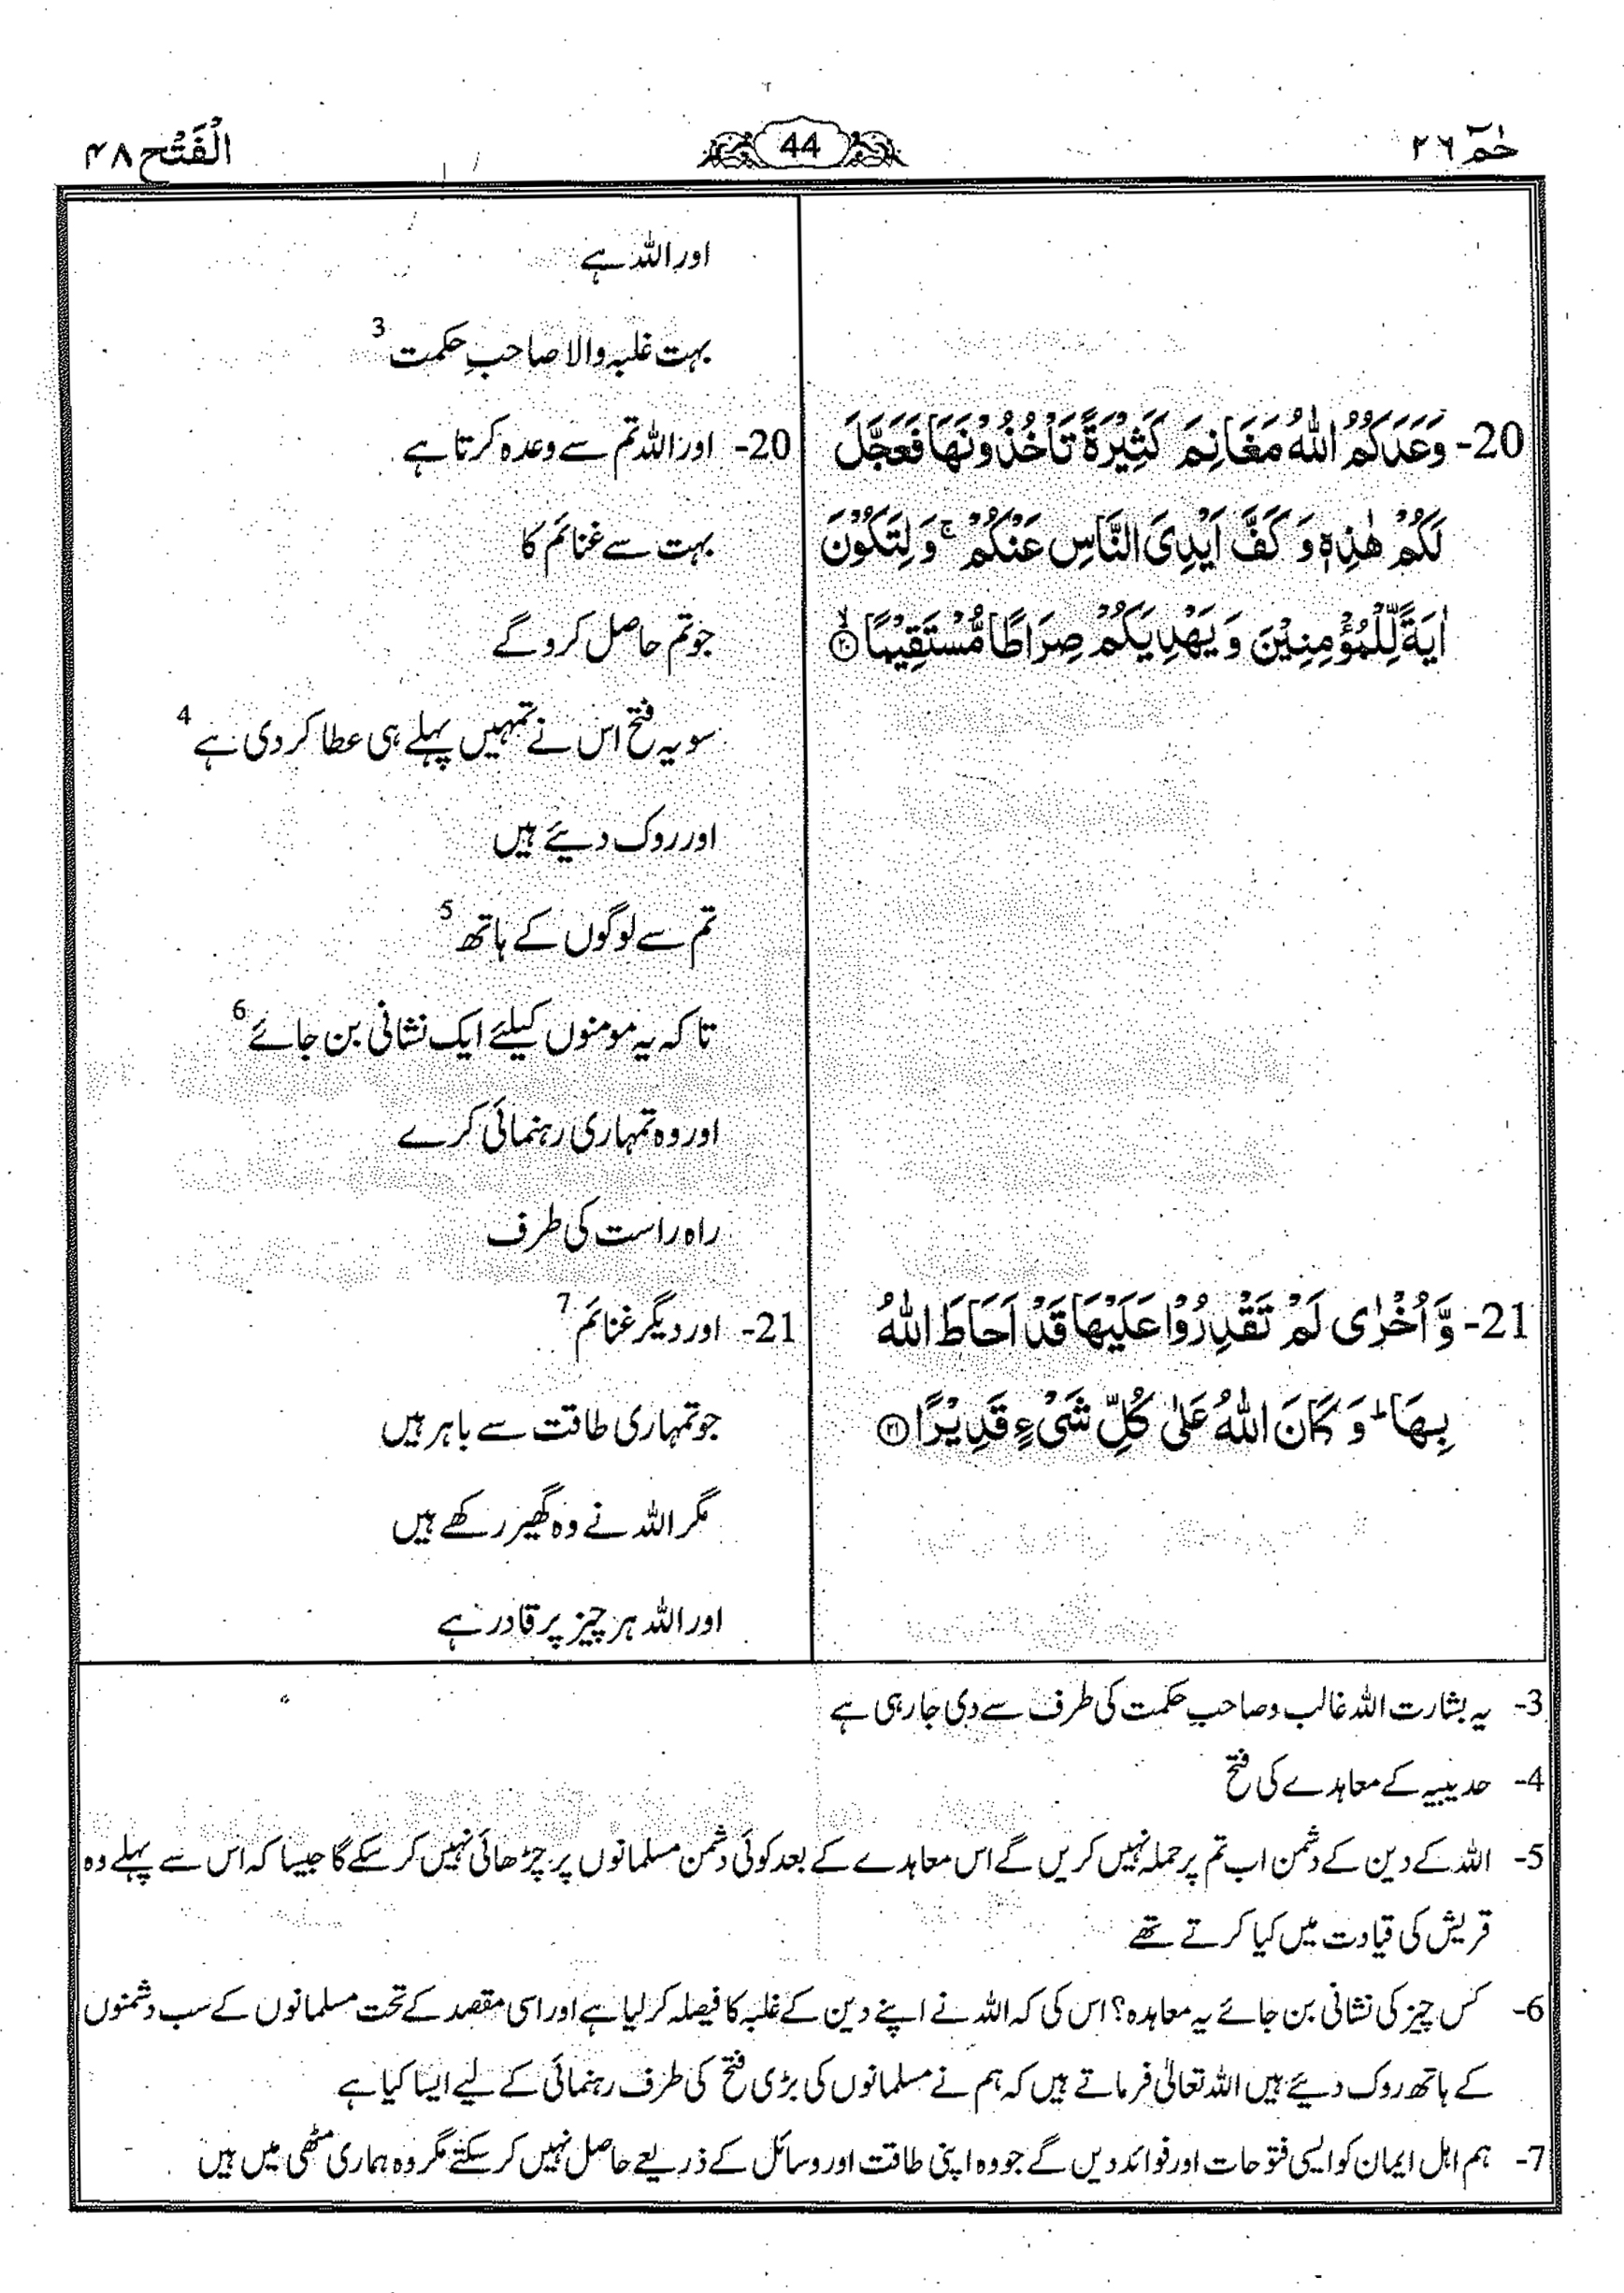 حٰمٓ ٢٦
44
الْفَتْح ٤٨
اور اللہ ہے
بہت غلبہ والا صاحبِ حکمت 3
20- وَعَدَكُمُ اللّٰهُ مَغَانِمَ كَثِيْرَةً تَاْخُذُوْنَهَا فَعَجَّلَ
لَكُمْ هٰذِهٖ وَ كَفَّ اَيْدِىَ النَّاسِ عَنْكُمْ ۚ وَ لِتَكُوْنَ
اٰيَةً لِّلْمُؤْمِنِيْنَ وَ يَهْدِيَكُمْ صِرَاطًا مُّسْتَقِيْمًا ۙ ۲۰
20- اور اللہ تم سے وعدہ کرتا ہے
بہت سے غنائم کا
جو تم حاصل کرو گے
سو یہ فتح اس نے تمہیں پہلے ہی عطا کر دی ہے 4
اور روک دیئے ہیں
تم سے لوگوں کے ہاتھ 5
تا کہ یہ مومنوں کیلئے ایک نشانی بن جائے 6
اور وہ تمہاری رہنمائی کرے
راہ راست کی طرف
21- وَّ اُخْرٰى لَمْ تَقْدِرُوْا عَلَيْهَا قَدْ اَحَاطَ اللّٰهُ
بِهَا ؕ وَ كَانَ اللّٰهُ عَلٰى كُلِّ شَىْءٍ قَدِيْرًا ۲۱
21- اور دیگر غنائم 7
جو تمہاری طاقت سے باہر ہیں
مگر اللہ نے وہ گھیر رکھے ہیں
اور اللہ ہر چیز پر قادر ہے
3- یہ بشارت اللہ غالب و صاحبِ حکمت کی طرف سے دی جا رہی ہے
4- حدیبیہ کے معاہدے کی فتح
5- اللہ کے دین کے دشمن اب تم پر حملہ نہیں کریں گے اس معاہدے کے بعد کوئی دشمن مسلمانوں پر چڑھائی نہیں کر سکے گا جیسا کہ اس سے پہلے وہ
قریش کی قیادت میں کیا کرتے تھے
6- کس چیز کی نشانی بن جائے یہ معاہدہ؟ اس کی کہ اللہ نے اپنے دین کے غلبہ کا فیصلہ کر لیا ہے اور اسی مقصد کے تحت مسلمانوں کے سب دشمنوں
کے ہاتھ روک دیئے ہیں اللہ تعالیٰ فرماتے ہیں کہ ہم نے مسلمانوں کی بڑی فتح کی طرف رہنمائی کے لیے ایسا کیا ہے
7- ہم اہل ایمان کو ایسی فتوحات اور فوائد دیں گے جو وہ اپنی طاقت اور وسائل کے ذریعے حاصل نہیں کر سکتے مگر وہ ہماری مٹھی میں ہیں